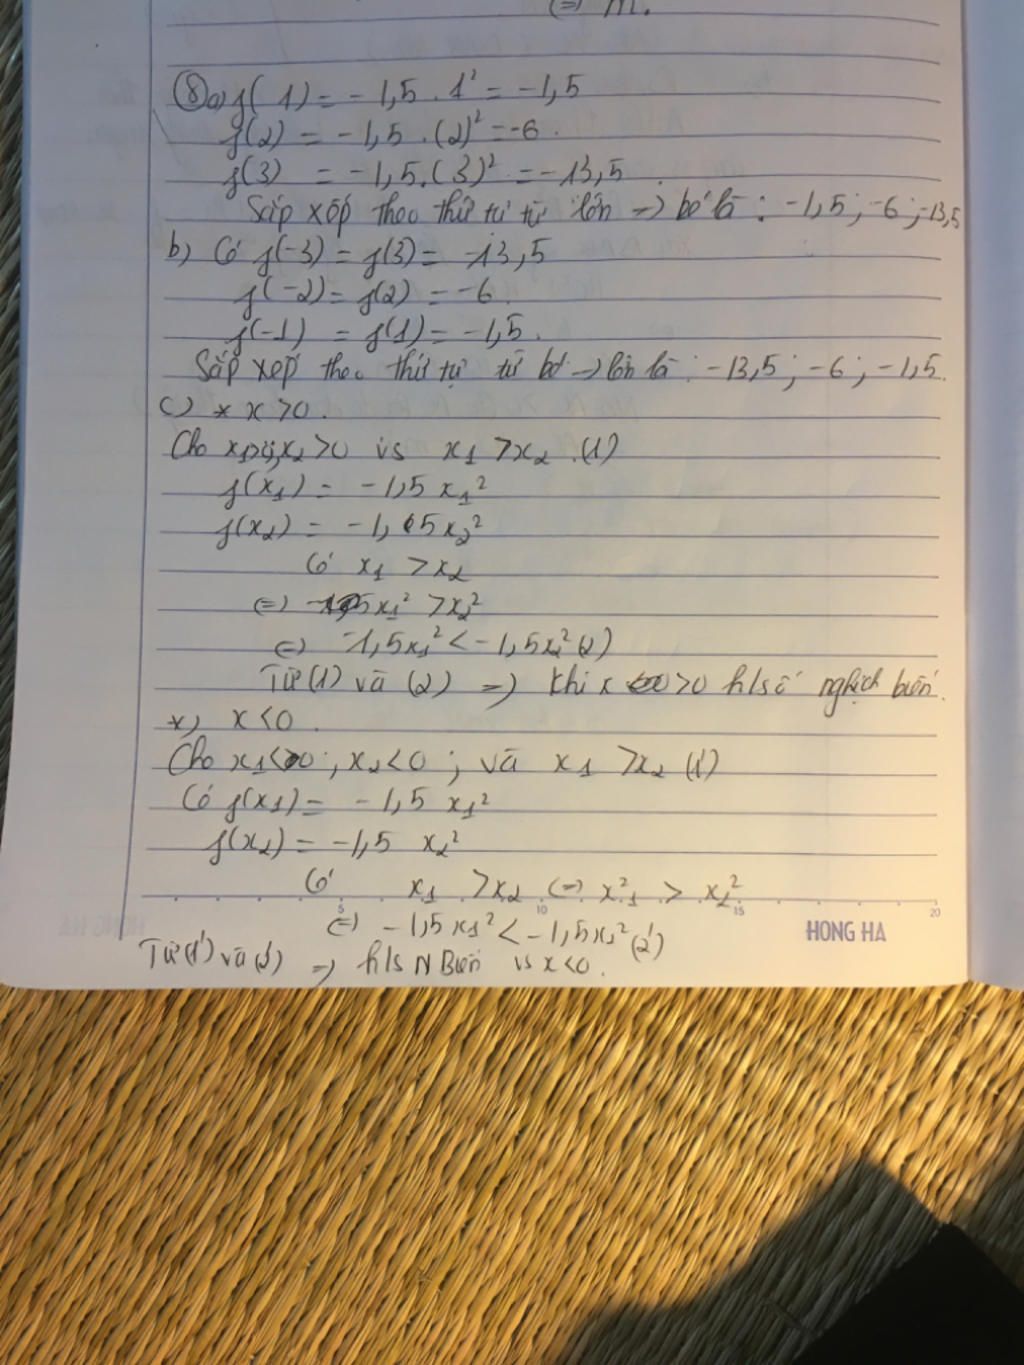 (=) m.
⑧ a) f(1) = -1,5 . 1² = -1,5
f(2) = -1,5 . (2)² = -6 .
f(3) = -1,5.(3)² = -13,5 .
Sắp xếp theo thứ tự từ lớn → bé là : -1,5 ; -6 ; -13,5
b) Có f(-3) = f(3) = -13,5
f(-2) = f(2) = -6 .
f(-1) = f(1) = -1,5 .
Sắp xếp theo thứ tự từ bé → lớn là : -13,5 ; -6 ; -1,5.
c) * x > 0 .
Cho x₁>0; x₂ > 0 vs x₁ > x₂ .(1)
f(x₁) = -1,5 x₁²
f(x₂) = -1,5 x₂²
Có x₁ > x₂
(=) x₁² > x₂²
(=) -1,5x₁² < -1,5x₂² (2)
Từ (1) và (2) => khi x > 0 h/số nghịch biến.
*) x < 0 .
Cho x₁ < 0 ; x₂ < 0 ; và x₁ > x₂ (1')
Có f(x₁) = -1,5 x₁²
f(x₂) = -1,5 x₂²
Có x₁ > x₂ (=) x₁² > x₂²
5 10 15 20
(=) -1,5x₁² < -1,5x₂² (2')
HONG HA
Từ (1') và (2') => h/s N Biến vs x < 0 .